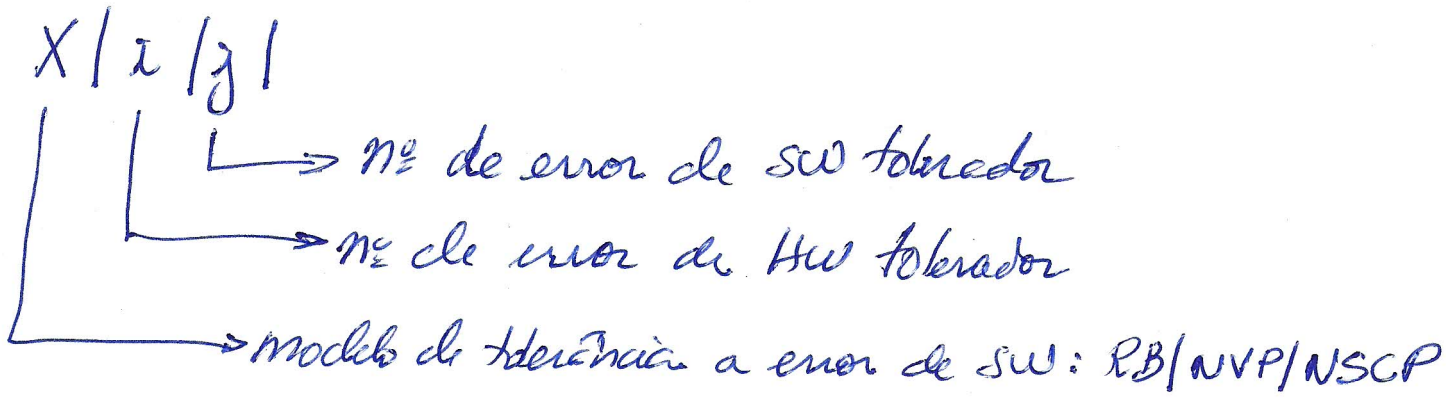 X/i/j/
nº de erros de SW tolerados
nº de erros de HW tolerados
modelo de tolerância a erros de SW: RB/NVP/NSCP